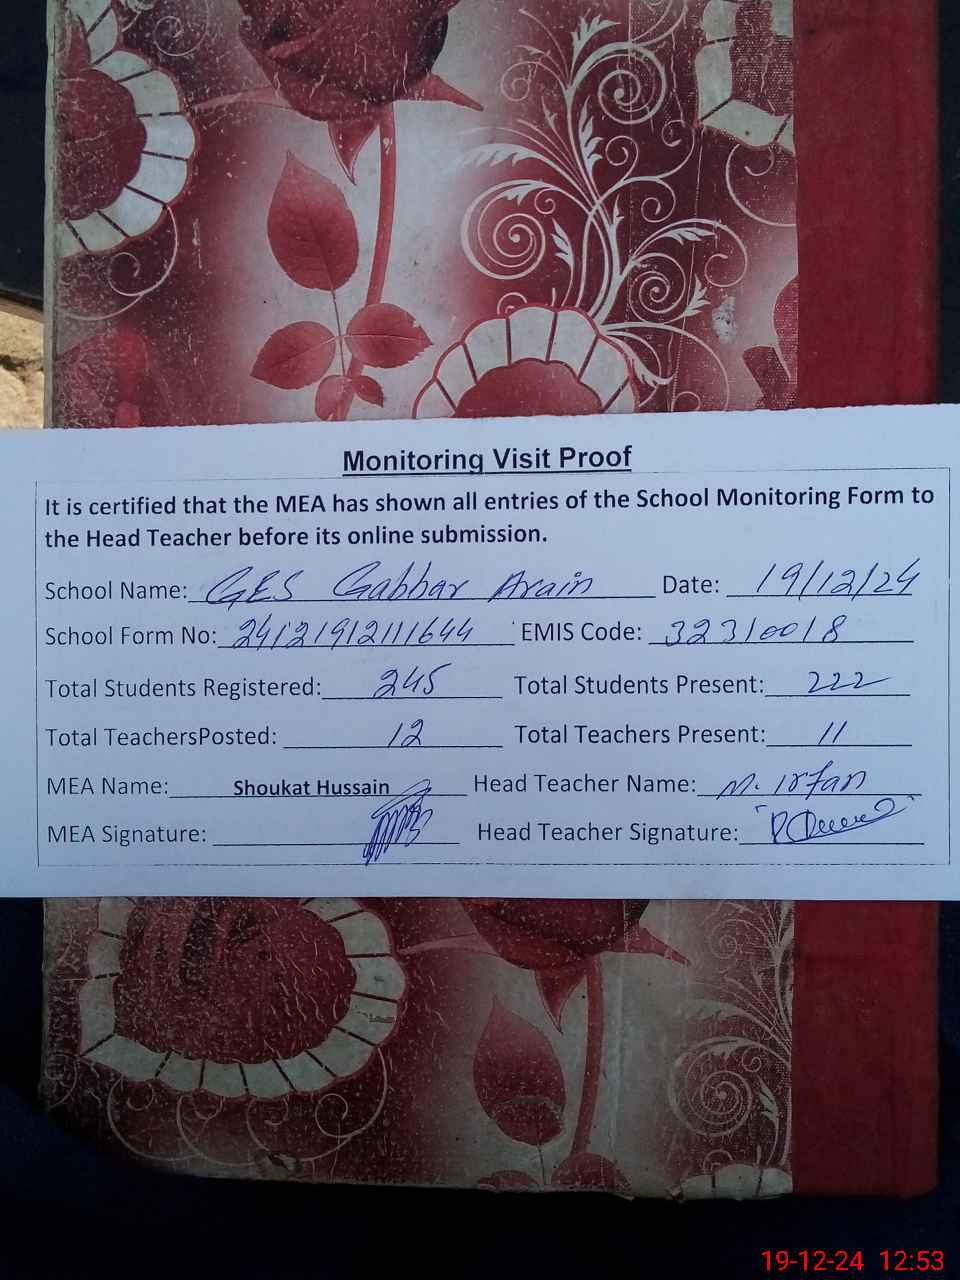 Monitoring Visit Proof
It is certified that the MEA has shown all entries of the School Monitoring Form to
the Head Teacher before its online submission.
School Name: GES Gabbar Arain Date: 19/12/24
School Form No: 241219121111644 EMIS Code: 32310018
Total Students Registered: 245 Total Students Present: 222
Total TeachersPosted: 12 Total Teachers Present: 11
MEA Name: Shoukat Hussain Head Teacher Name: M. Irfan
MEA Signature: Head Teacher Signature:
19-12-24 12:53